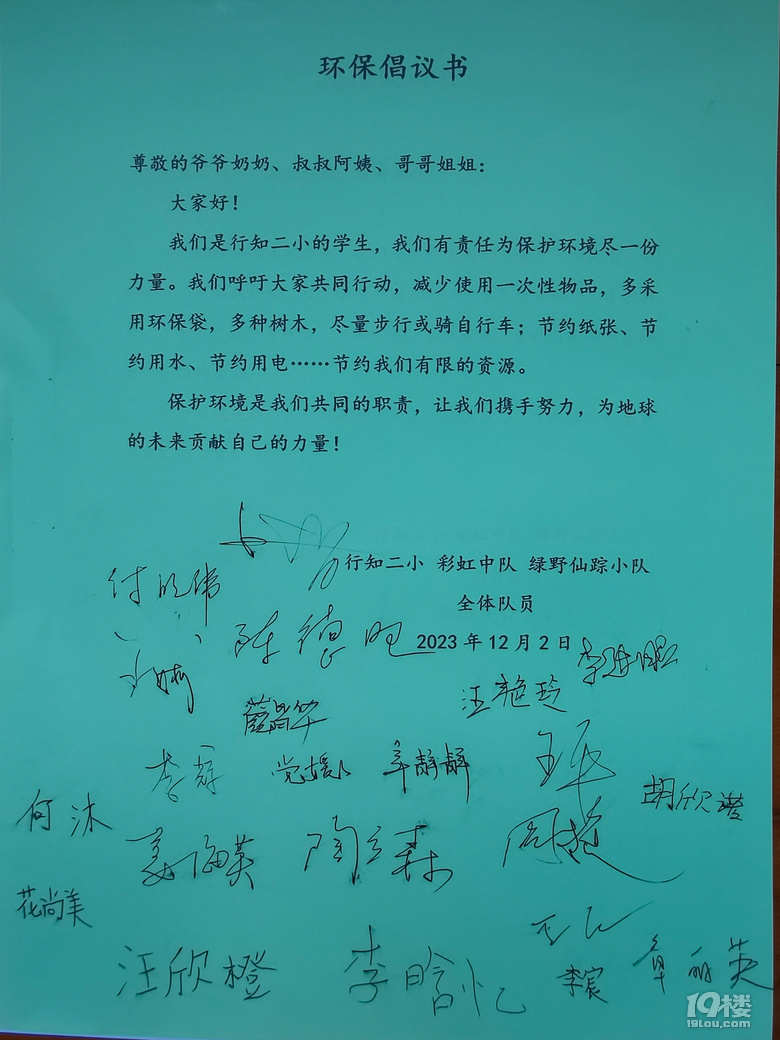 环保倡议书
尊敬的爷爷奶奶、叔叔阿姨、哥哥姐姐：
大家好！
我们是行知二小的学生，我们有责任为保护环境尽一份
力量。我们呼吁大家共同行动，减少使用一次性物品，多采
用环保袋，多种树木，尽量步行或骑自行车；节约纸张、节
约用水、节约用电……节约我们有限的资源。
保护环境是我们共同的职责，让我们携手努力，为地球
的未来贡献自己的力量！
行知二小 彩虹中队 绿野仙踪小队
全体队员
2023年12月2日
陈德旺
汪艳玲
辛静静
何沐
姜海英
陶立森
花尚美
汪欣橙
李晗忆
李宸
19楼
19lou.com